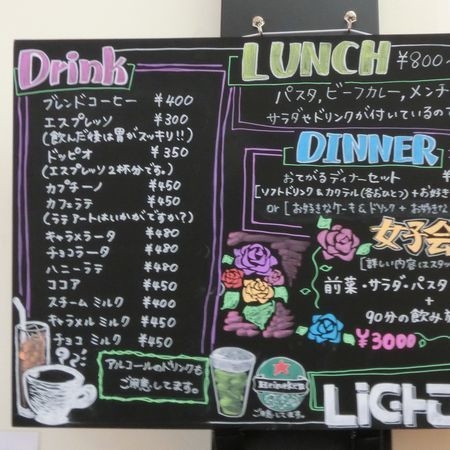 Drink
ブレンドコーヒー ¥400
エスプレッソ ¥300
(飲んだ後は胃がスッキリ!!)
ドッピオ ¥350
(エスプレッソ2杯分です。)
カプチーノ ¥450
カフェラテ ¥450
(ラテアートはいかがですか?)
キャラメラータ ¥480
チョコラータ ¥480
ハニーラテ ¥480
ココア ¥450
スチームミルク ¥400
キャラメルミルク ¥450
チョコミルク ¥450
アルコールのドリンクも
ご用意してます。
LUNCH ¥800~
パスタ,ビーフカレー,メンチ
サラダやドリンクが付いているので
DINNER ¥
おてがるディナーセット
[ソフトドリンク&カクテル(各おひとつ)+お好き
or [お好きなケーキ&ドリンク+お好きな
女子会
[詳しい内容はスタッ
前菜・サラダ・パスタ
+
90分の飲み放
¥3000
Heineken
ご用意してます。
LiGHT